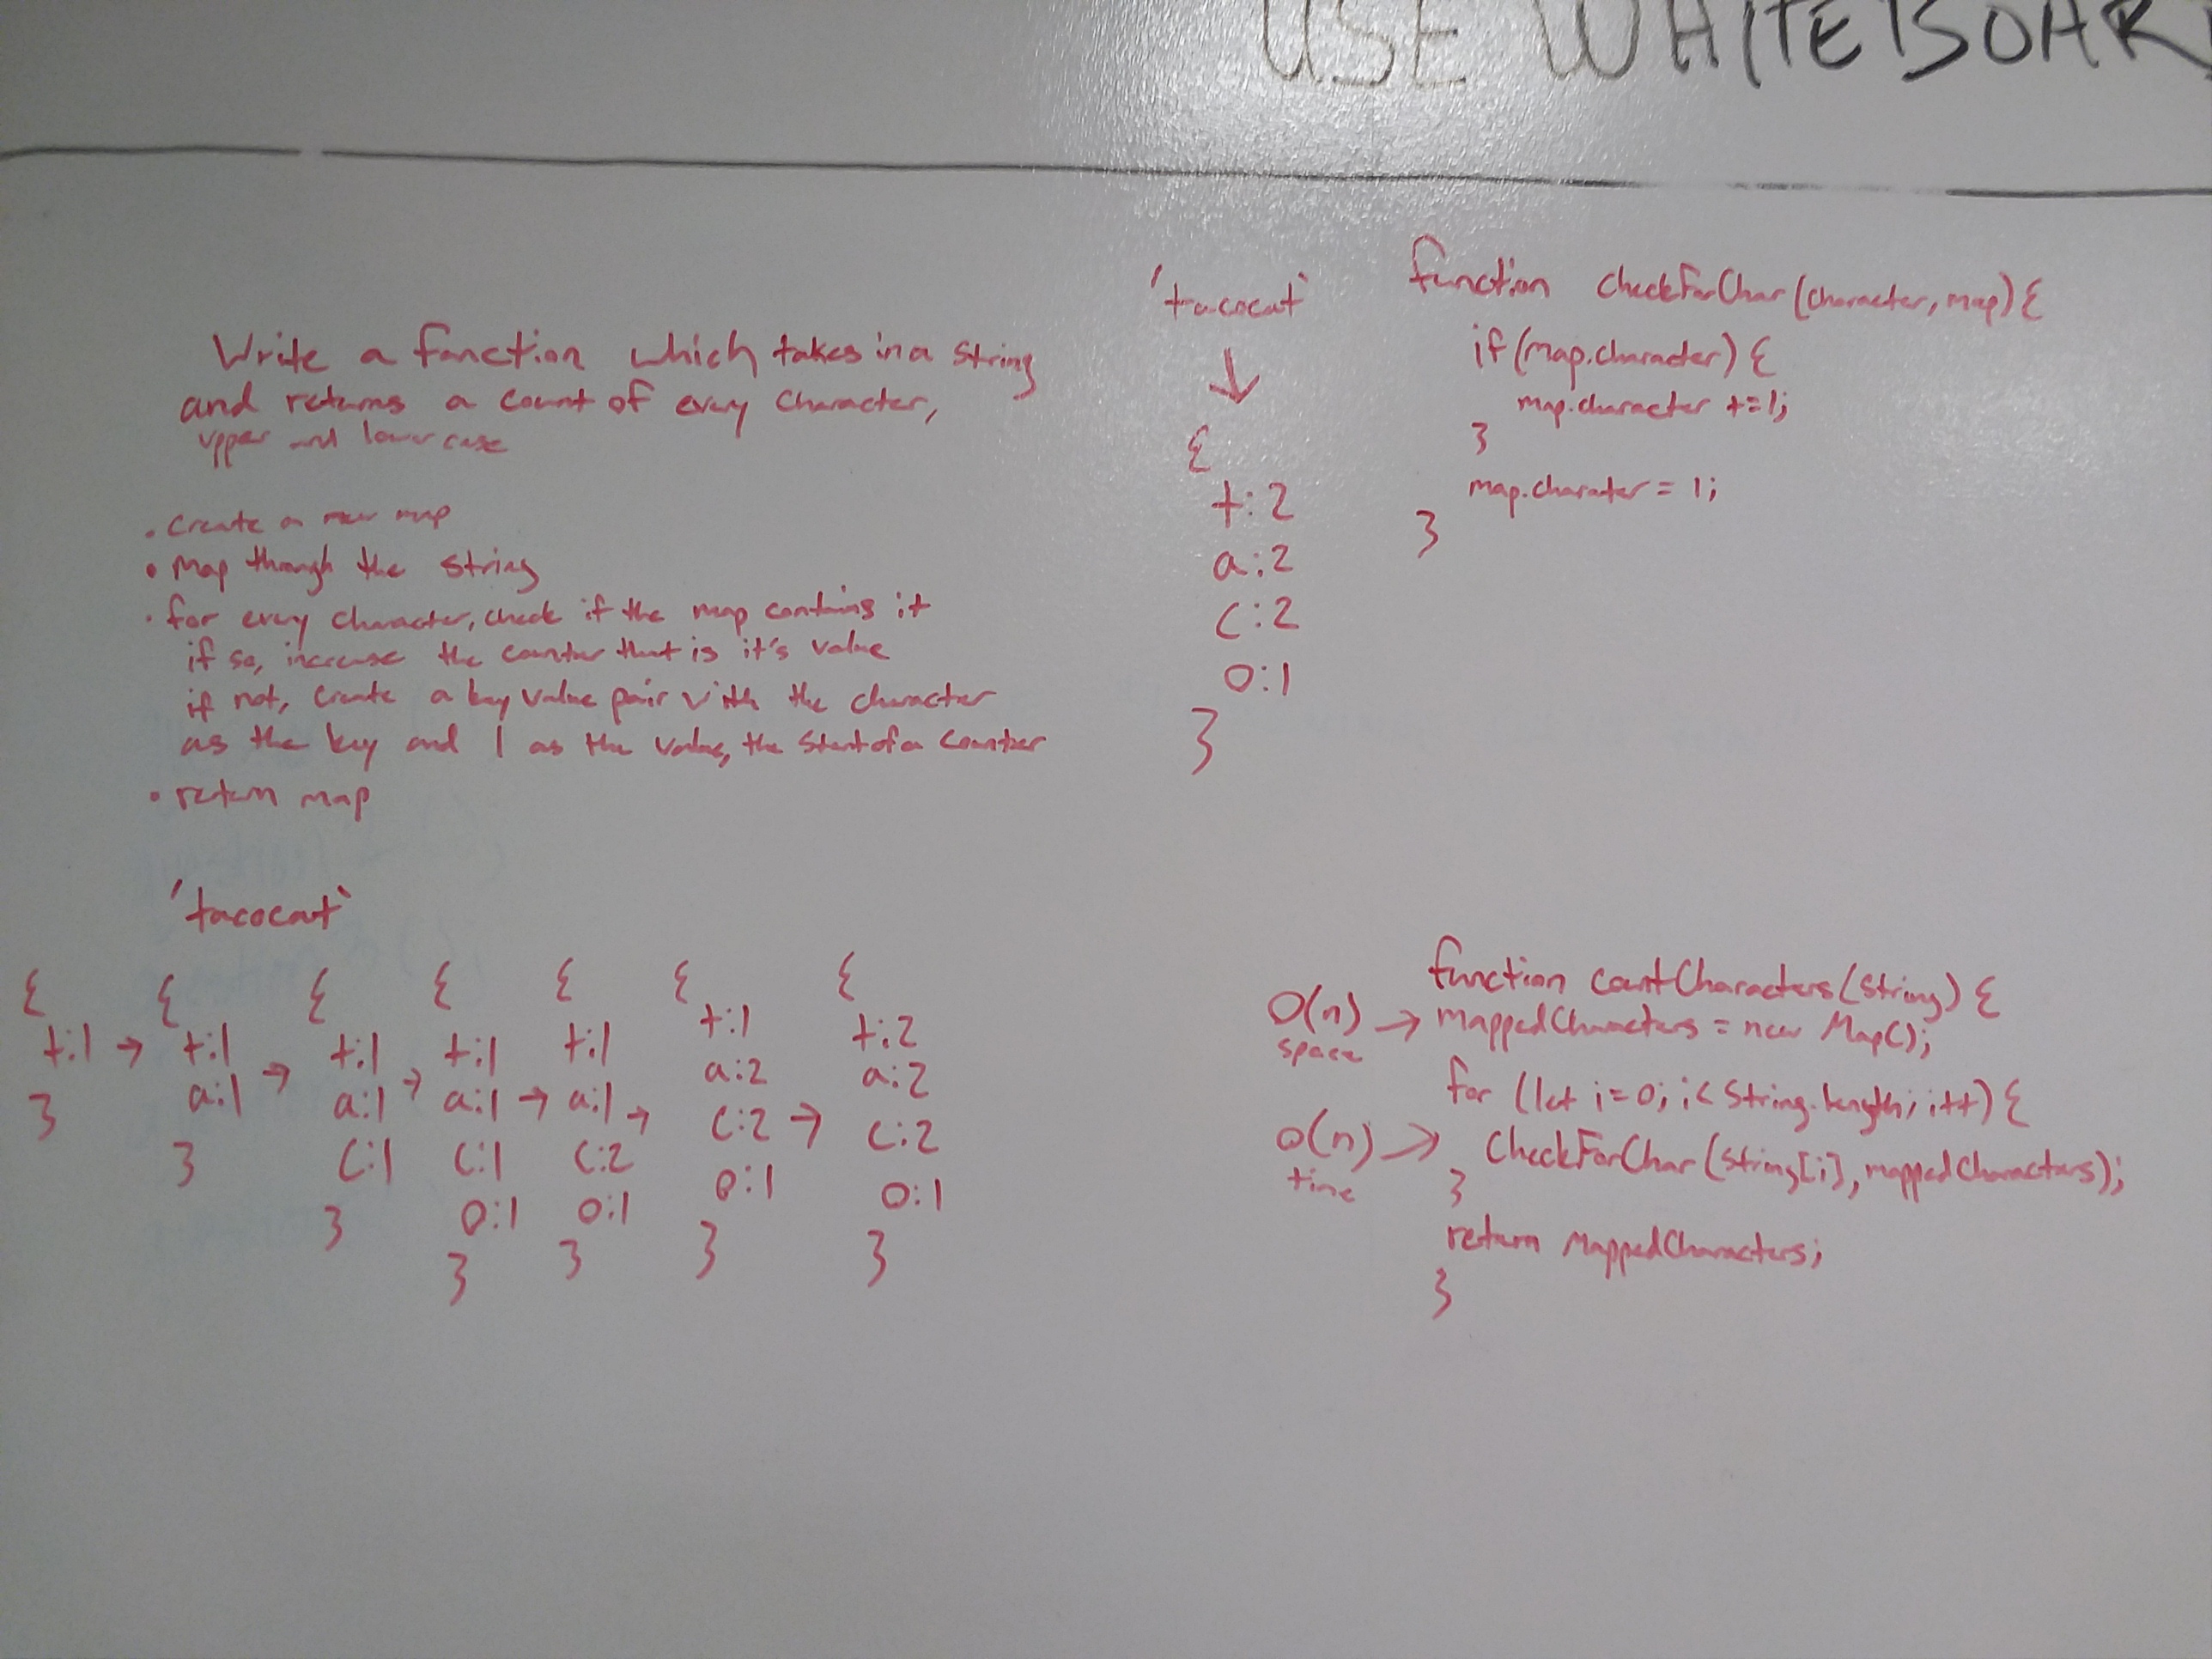 USE WHITEBOAR
Write a function which takes in a string
and returns a count of every character,
upper and lower case
• Create a new map
• Map through the string
• for every character, check if the map contains it
if so, increase the counter that is it's value
if not, create a key value pair with the character
as the key and 1 as the value, the start of a counter
• return map
'tacocat'
↓
{
t:2
a:2
c:2
o:1
}
function checkForChar(character, map) {
if (map.character) {
map.character += 1;
}
map.character = 1;
}
'tacocat'
{ { { { { { {
t:1 → t:1 t:1 t:1 t:1 t:1 t:2
} a:1 → a:1 → a:1 → a:1 → a:2 a:2
} c:1 c:1 c:2 c:2 → c:2
} o:1 o:1 o:1 o:1
} } } }
function countCharacters(string) {
O(n) space → mappedCharacters = new Map();
for (let i=0; i< string.length; i++) {
O(n) time → checkForChar(string[i], mappedCharacters);
}
return mappedCharacters;
}